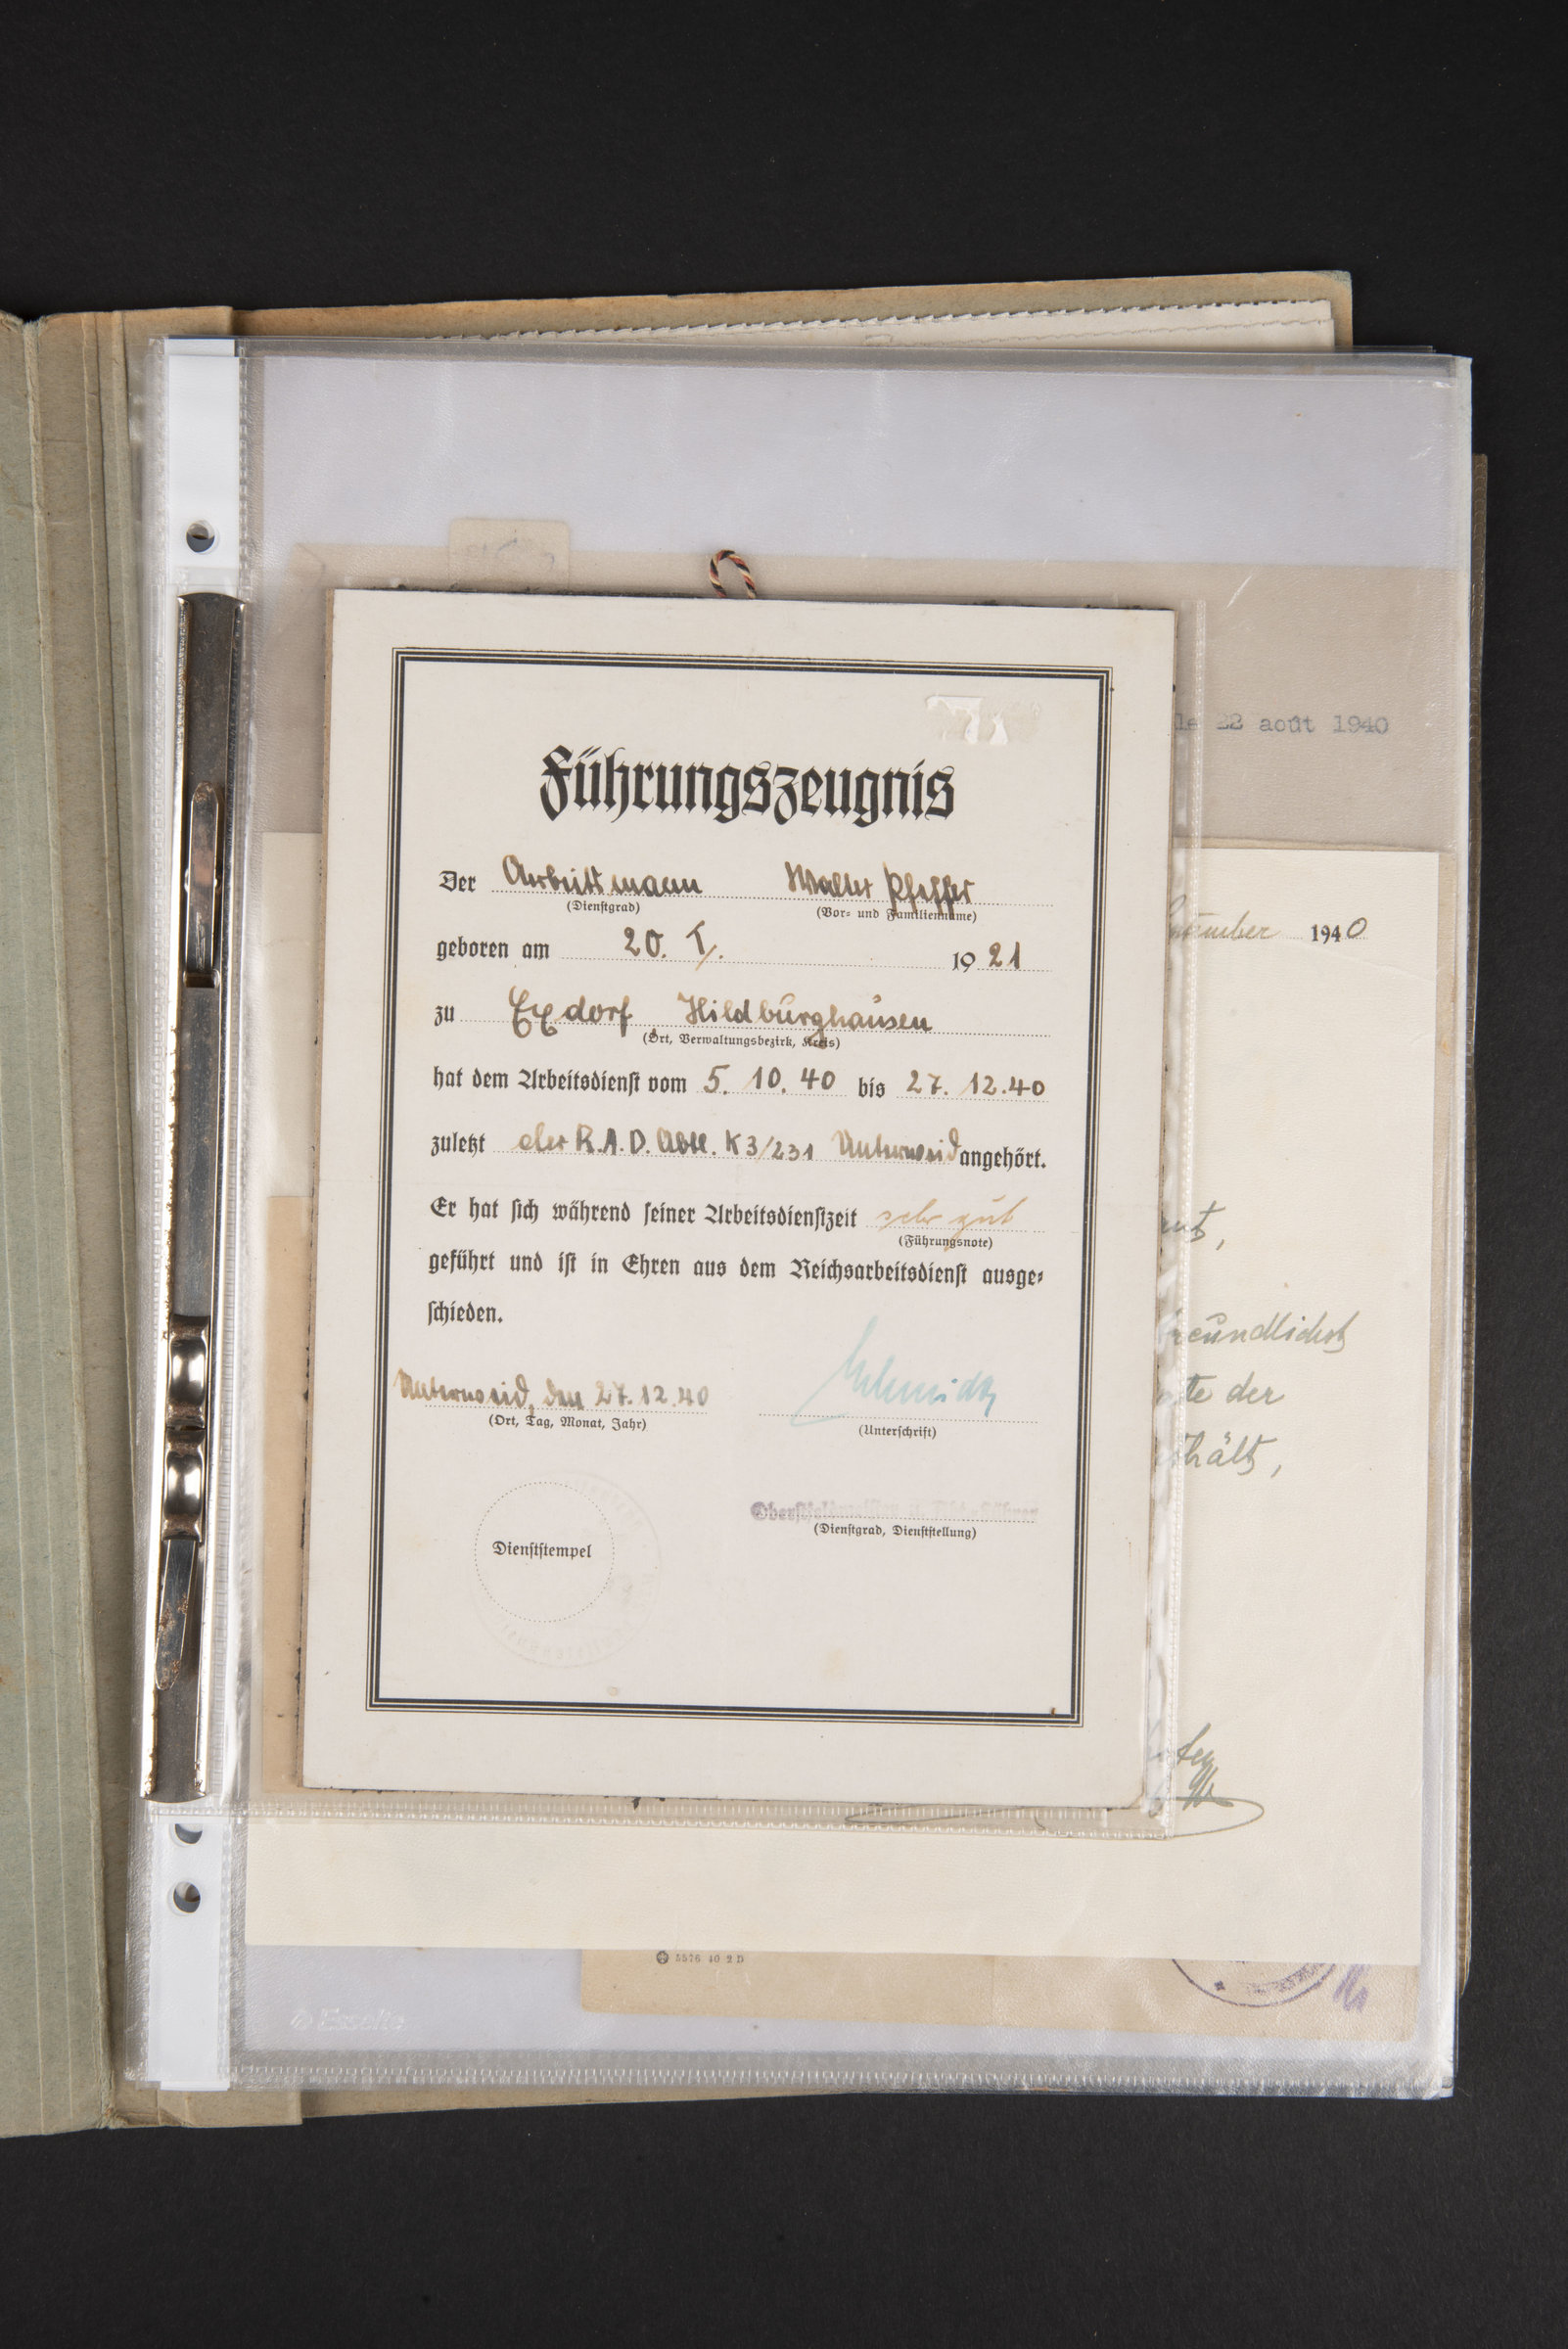 le 22 août 1940
Führungszeugnis
Der Arbeitsmann Walter Pfeffer
(Dienstgrad) (Vor- und Familienname)
geboren am 20. I. 1921
zu Exdorf Hildburghausen
(Ort, Verwaltungsbezirk, Kreis)
hat dem Arbeitsdienst vom 5. 10. 40 bis 27. 12. 40
zuletzt der R.A.D. Abtl. K 3/231 Unterweid angehört.
Er hat sich während seiner Arbeitsdienstzeit sehr gut
(Führungsnote)
geführt und ist in Ehren aus dem Reichsarbeitsdienst ausge-
schieden.
Unterweid, den 27. 12. 40 Schmidt
(Ort, Tag, Monat, Jahr) (Unterschrift)
(Dienstgrad, Dienststellung)
Dienststempel
1940
der
5576 40 2 D
Esselte